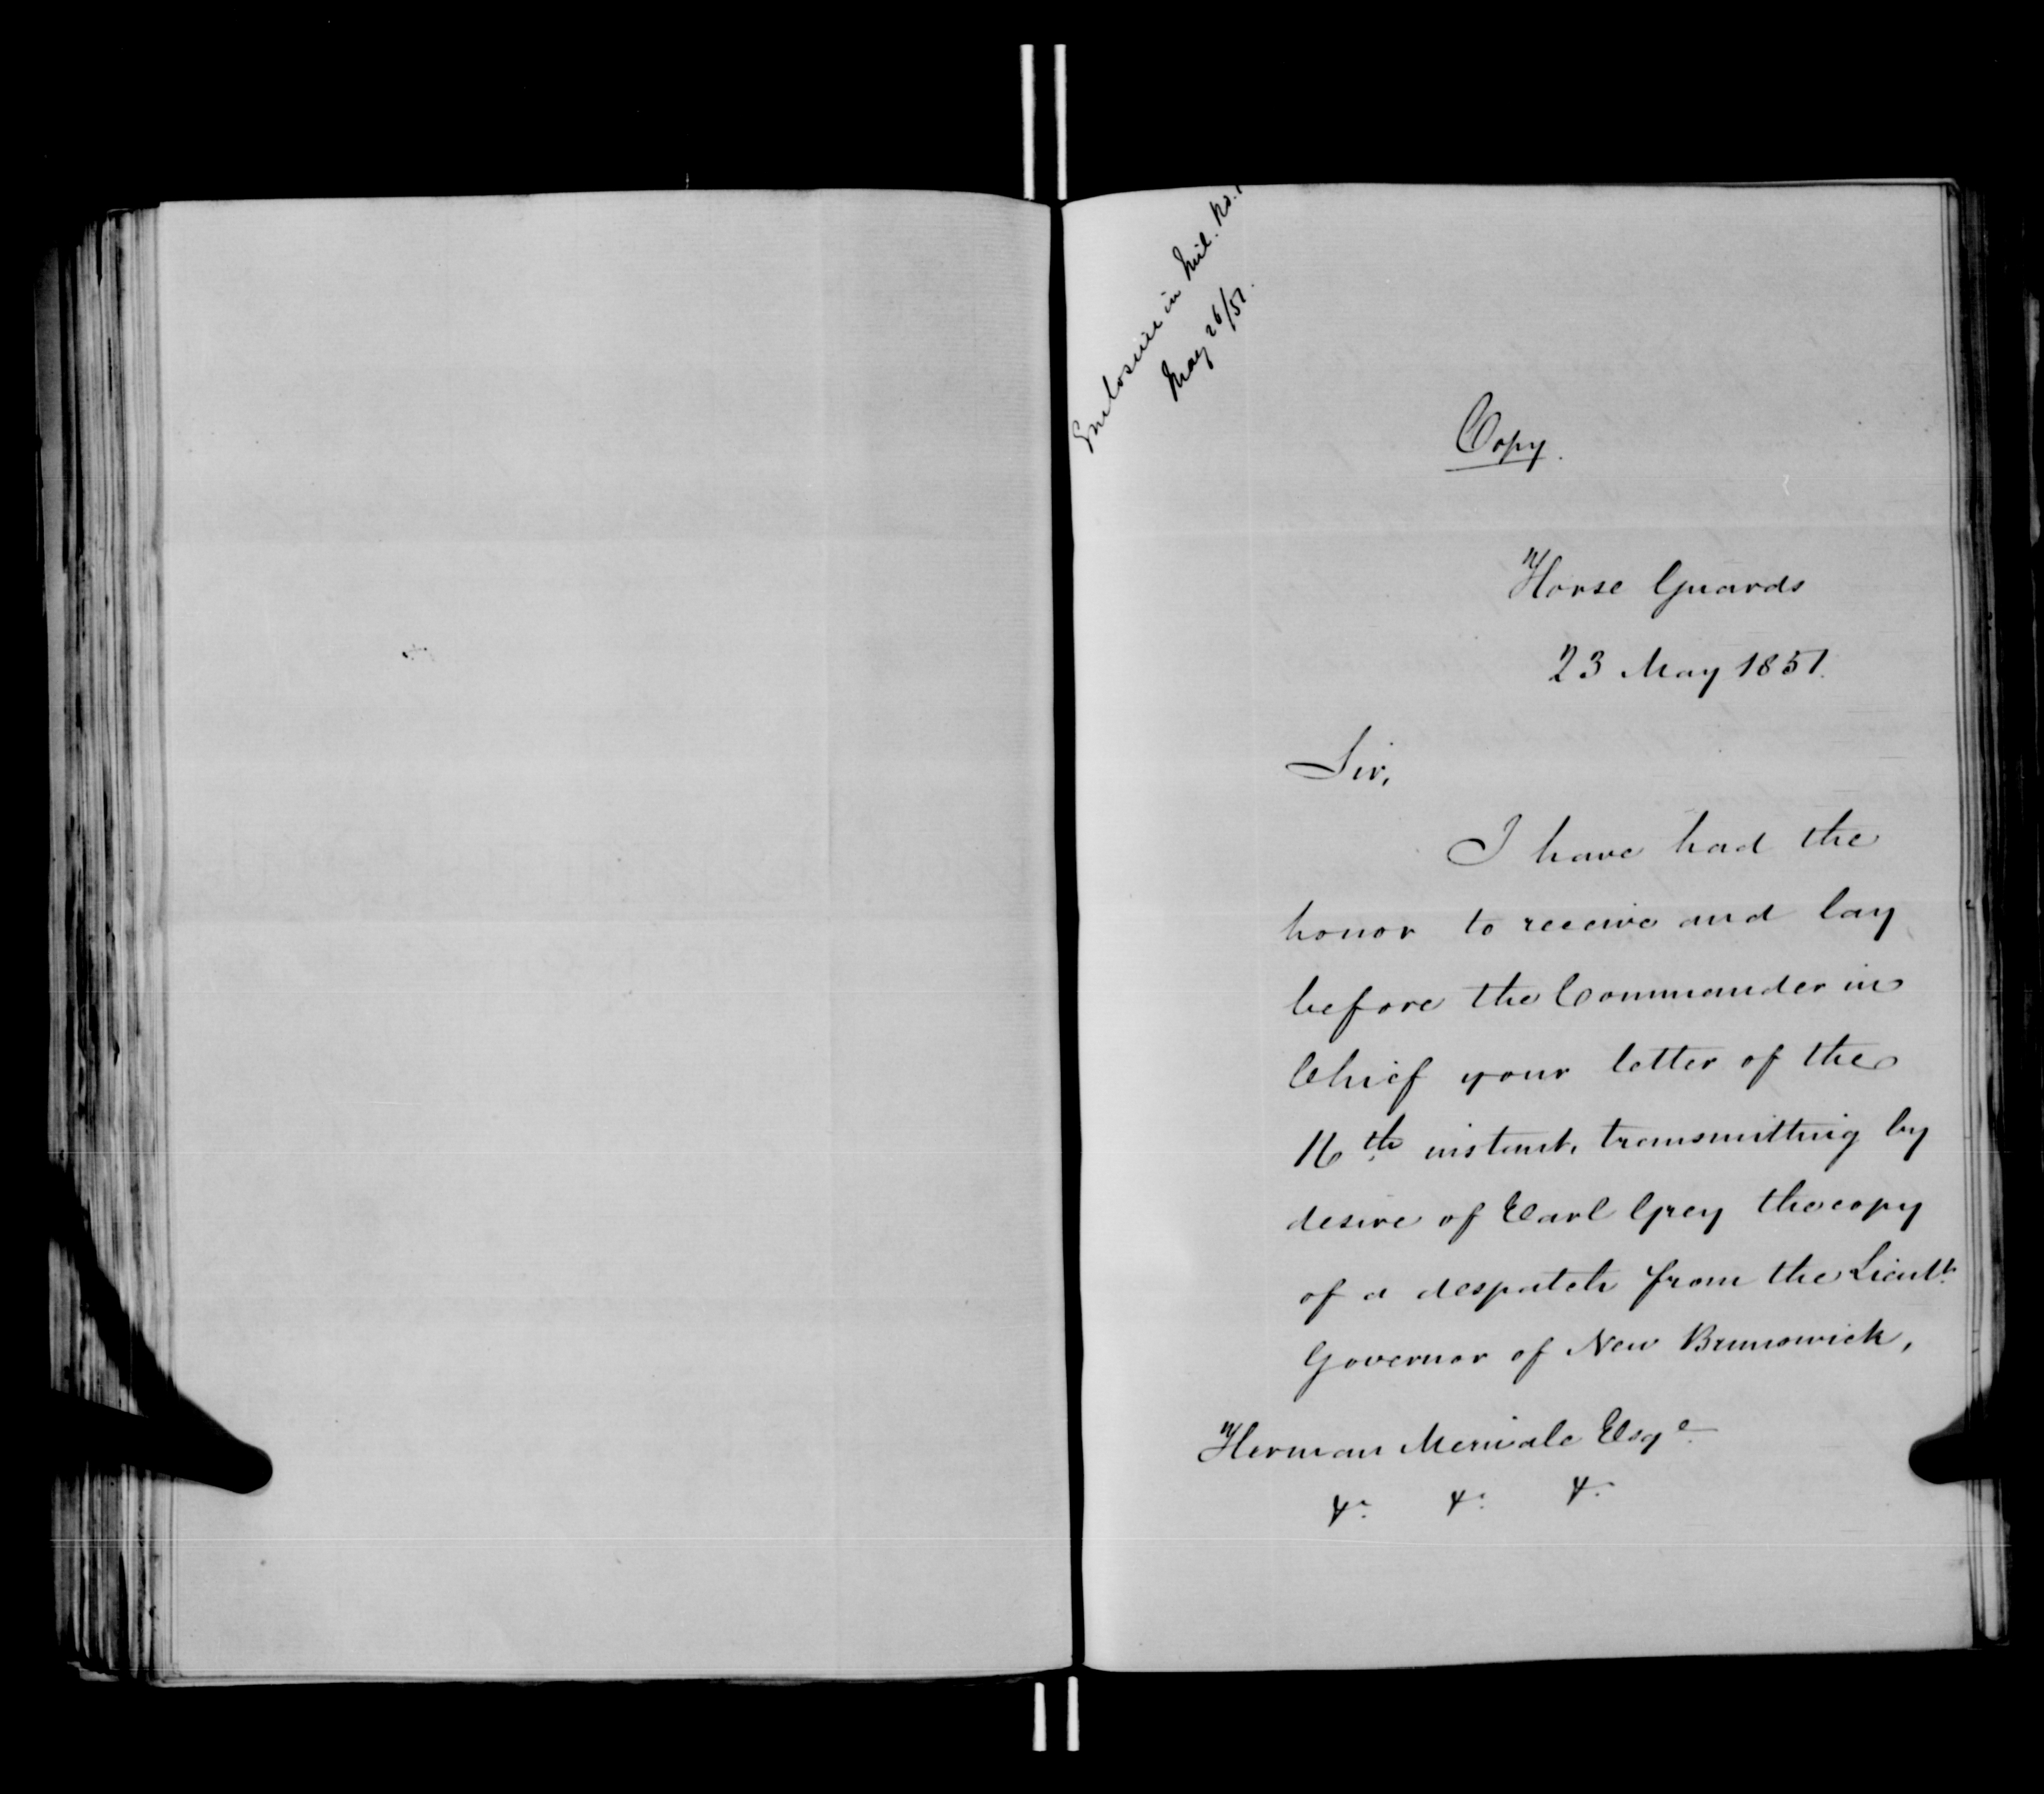 Enclosure in Mil. No. 1
May 26/51.
Copy.
Horse Guards
23 May 1851.
Sir,
I have had the
honor to receive and lay
before the Commander in
Chief your letter of the
16th instant, transmitting by
desire of Earl Grey the copy
of a despatch from the Lieutt.
Governor of New Brunswick,
Herman Merivale Esqe.
&c. &c. &c.